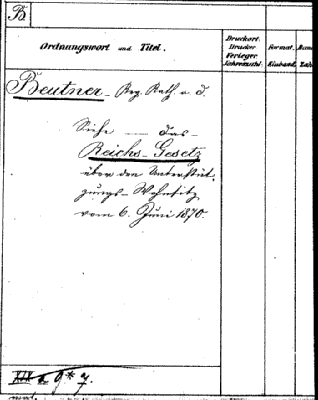 B.
Ordnungswort und Titel.
Druckort.
Drucker
Verleger
Jahreszahl.
Format.
Einband.
Beutner – Reg. Rath a. D.
Siehe — das –
Reichs-Gesetz
über den Unterstüt-
zungs-Wohnsitz
vom 6. Juni 1870.
9* 7.